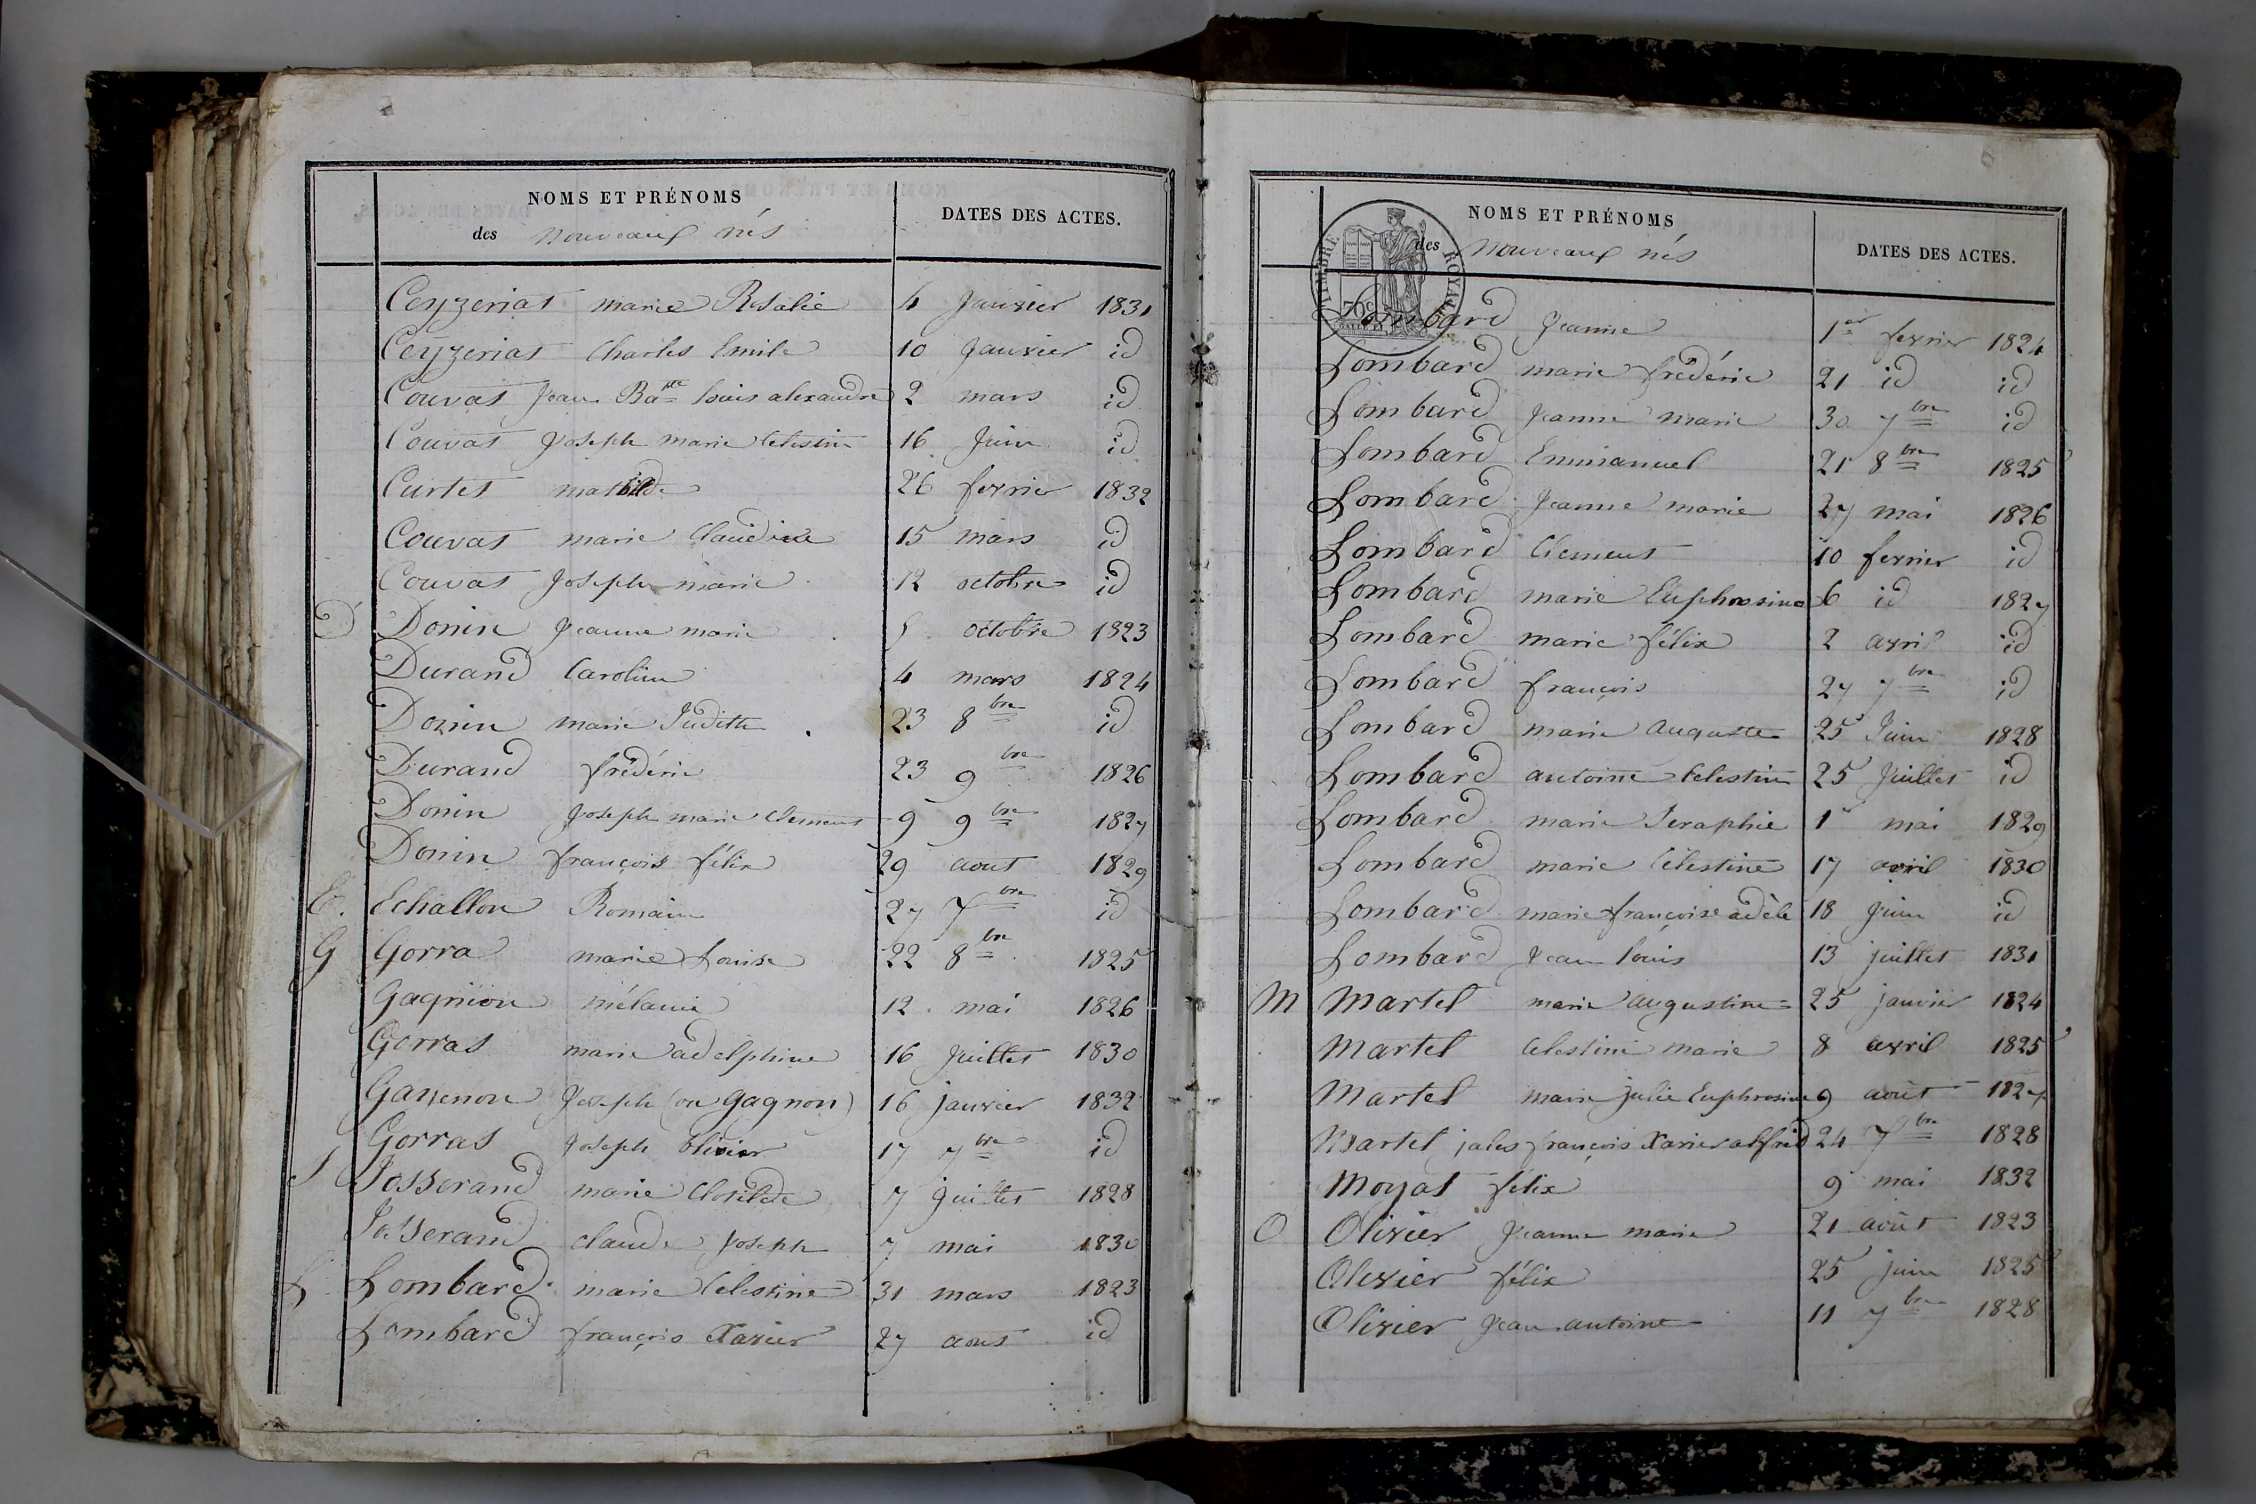 NOMS ET PRÉNOMS
des nouveaux nés
DATES DES ACTES.
Ceyzeriat marie Rosalie 4 Janvier 1831
Ceyzeriat Charles Emile 10 Janvier id
Couvat Jean Bate louis alexandre 2 mars id
Couvat Joseph marie Celestin 16 Juin id
Curtet mathilde 26 fevrier 1832
Couvat marie Claudine 15 mars id
Couvat Joseph marie 12 octobre id
D Donin Jeanne marie 5 octobre 1823
Durand Caroline 4 mars 1824
Donin marie Judith 23 8bre id
Durand frédéric 23 9bre 1826
Donin Joseph marie Clement 9 9bre 1827
Donin françois félix 29 aout 1829
E. Echallon Romain 27 7bre id
G Gorra marie Louise 22 8bre 1825
Gagniion mélanie 12 mai 1826
Gorras marie adelphine 16 Juillet 1830
Ganenon Joseph (ou gagnon) 16 janvier 1832
Gorras Joseph Olivier 17 7bre id
J Josserand marie Clotilde 7 Juillet 1828
Josserand claude Joseph 7 mai 1830
L Lombard marie Celestine 31 mars 1823
Lombard françois Xavier 27 aout id
NOMS ET PRÉNOMS
des nouveaux nés
DATES DES ACTES.
TIMBRE ROYAL
70c
Lombard Jeanne 1er fevrier 1824
Lombard marie frédéric 21 id id
Lombard Jeanne marie 30 7bre id
Lombard Emmanuel 21 8bre 1825
Lombard Jeanne marie 27 mai 1826
Lombard Clement 10 fevrier id
Lombard marie Euphrosine 6 id 1827
Lombard marie félix 2 avril id
Lombard françois 27 7bre id
Lombard marie auguste 25 Juin 1828
Lombard antoine Celestin 25 Juillet id
Lombard marie Seraphie 1r mai 1829
Lombard marie Célestine 17 avril 1830
Lombard marie françoise adèle 18 Juin id
Lombard Jean louis 13 juillet 1831
M Martel marie augustine 25 janvier 1824
Martel Celestine marie 8 avril 1825
Martel marie julie Euphrosine 9 août 1827
Martel jules françois Xavier alfred 24 7bre 1828
Moyat félix 9 mai 1832
O Olivier Jeanne marie 21 août 1823
Olivier félix 25 juin 1825
Olivier Jean antoine 11 7bre 1828